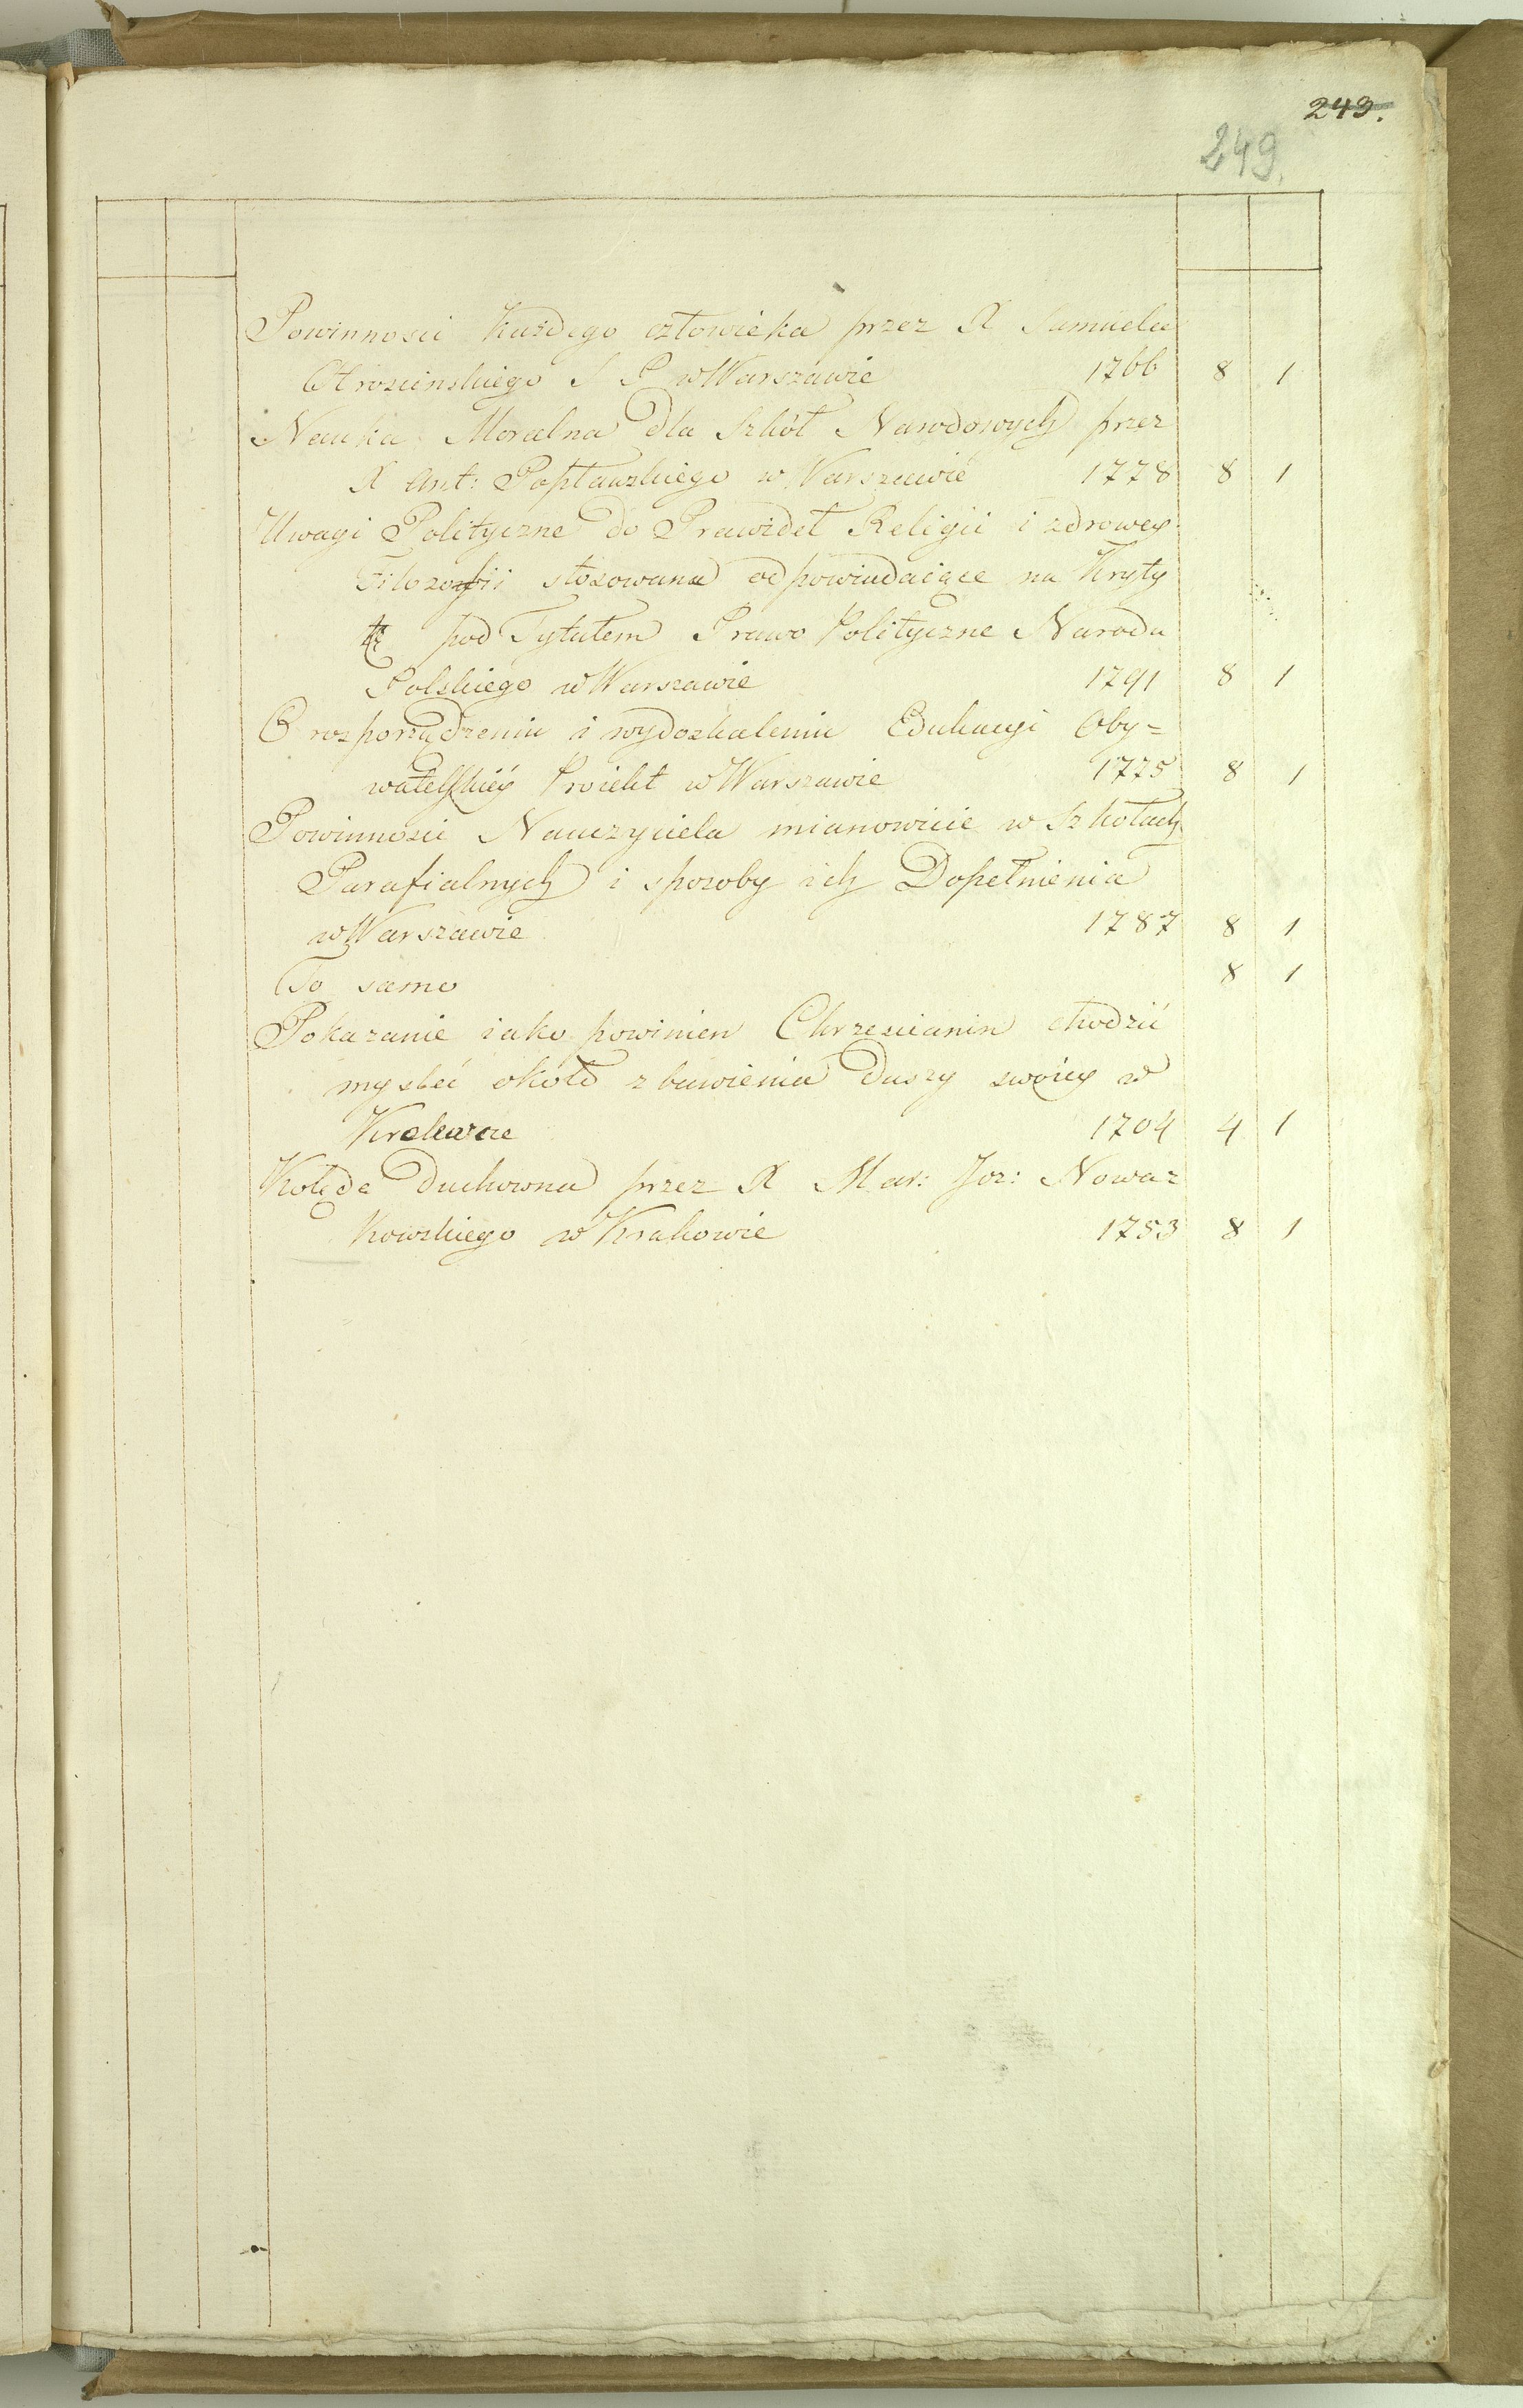 243.
249.
Powinnosci Każdego człowieka przez X Samuela
Chroscinskiego S P w Warszawie 1766 8 1
Nauka Moralna dla Szkół Narodowych przez
X Ant: Popławskiego w Warszawie 1778 8 1
Uwagi Polityczne do Prawideł Religii i zdrowey
Filozofii stosowane odpowiadaiące na Kryty
kę pod Tytułem Prawo Polityczne Narodu
Polskiego w Warszawie 1791 8 1
O rozporządzeniu i wydoskaleniu Edukacyi Oby=
watelskiey Proiekt w Warszawie 1775 8 1
Powinnosci Nauczyciela mianowicie w Szkołach
Parafialnych i sposoby ich Dopełnienia
w Warszawie 1787 8 1
To samo 8 1
Pokazanie iako powinien Chrzescianin chodzić
mysleć około zbawienia duszy swoiey w
Krakowie 1704 4 1
Kolęda Duchowna przez X Mar: Joz: Nowa=
kowskiego w Krakowie 1753 8 1